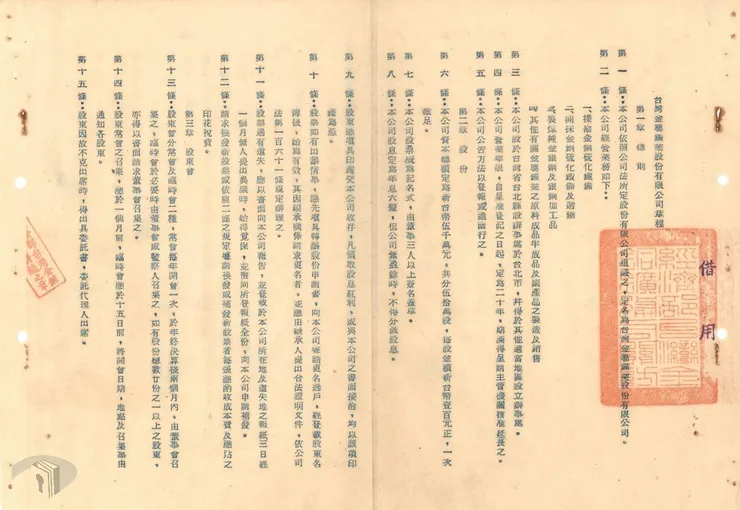 台灣金屬鑛業股份有限公司章程
第一章 總則
第一條：本公司依照公司法所定股份有限公司組織之，定名為台灣金屬鑛業股份有限公司。
第二條：本公司經營業務如下：
一、採冶金銅硫化鐵鑛
二、開採金銅硫化鐵鑛及
三、製煉純金銀銅及銀銅加工品
四、其他有關金屬鑛業之原料成品半成品及副產品之製造及銷售
第三條：本公司設於台灣省台北縣設辦事處於台北市，幷得於其他適當地區設立辦事處。
第四條：本公司營業年限，自呈准登記之日起，定為二十年，期滿得呈請主管機關核准延長之。
第五條：本公司公告方法以登報或通函行之。
第二章 股份
第六條：本公司資本總額定為新台幣伍千萬元，共分伍拾萬股，每股金額新台幣壹百元正，一次
繳足。
第七條：本公司股票概為記名式，由董事三人以上簽名蓋章。
第八條：本公司股息定為年息六厘，但公司無盈餘時，不得分派股息。
第九條：股東應填具印鑑交本公司收存，凡領取股息紅利，或與本公司之書面接洽，均以該項印
鑑為憑。
第十條：股票如有出讓情事，應先填具轉讓股份申請書，向本公司申請更名過戶，經登載股東名
簿後，始為有效，其因繼承關係請求更名者，並應由繼承人提出合法證明文件，依公司
法第一百六十一條規定辦理之。
第十一條：股票遇有遺失，應以書面向本公司報告，並登載於本公司所在地及遺失地之報紙三日經
一個月無人提出異議時，始得覓保，並檢同所登報紙全份，向本公司申請補發。
第十二條：請求換發新股票或依前二條之規定聲請換發或補發新股票者每張應酌收成本費及應貼之
印花稅費。
第三章 股東會
第十三條：股東會分常會及臨時會二種，常會每年開會一次，於年終決算後兩個月內，由董事會召
集之，臨時會於必要時由董事會或監察人召集之，如有股份總數廿份之一以上之股東，
亦得以書面請求董事會召集之。
第十四條：股東常會之召集，應於一個月前，臨時會應於十五日前，將開會日期，地點及召集事由
通知各股東。
第十五條：股東因故不克出席時，得出具委託書，委託代理人出席。
借用